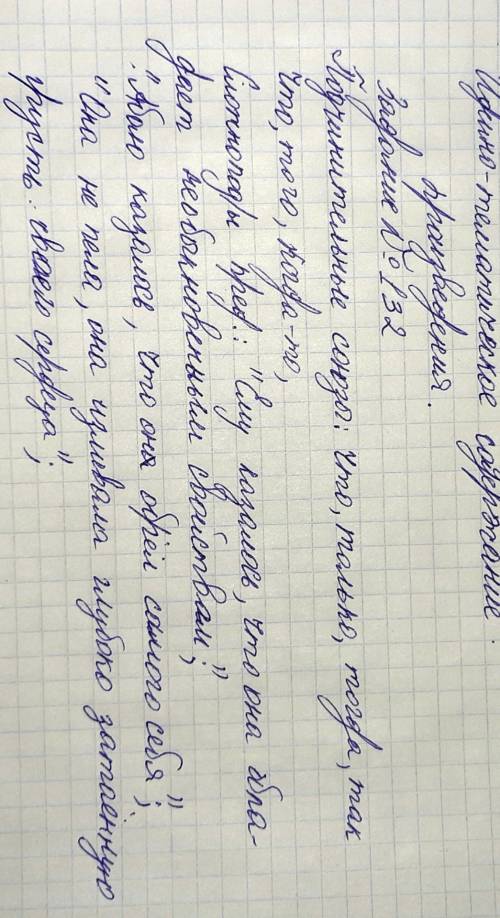 Идейно-тематическое содержание
произведения.
Задание № 132
Подчинительные союзы: что, только, тогда, так
что, того, когда-то,
Сложноподч. пред.: "Ему казалось, что она обла-
дает необыкновенным свойствам";
"Абаю казалось, что она обрёл самого себя";
"Она не пела, она изливала глубоко затаённую
грусть своего сердца";